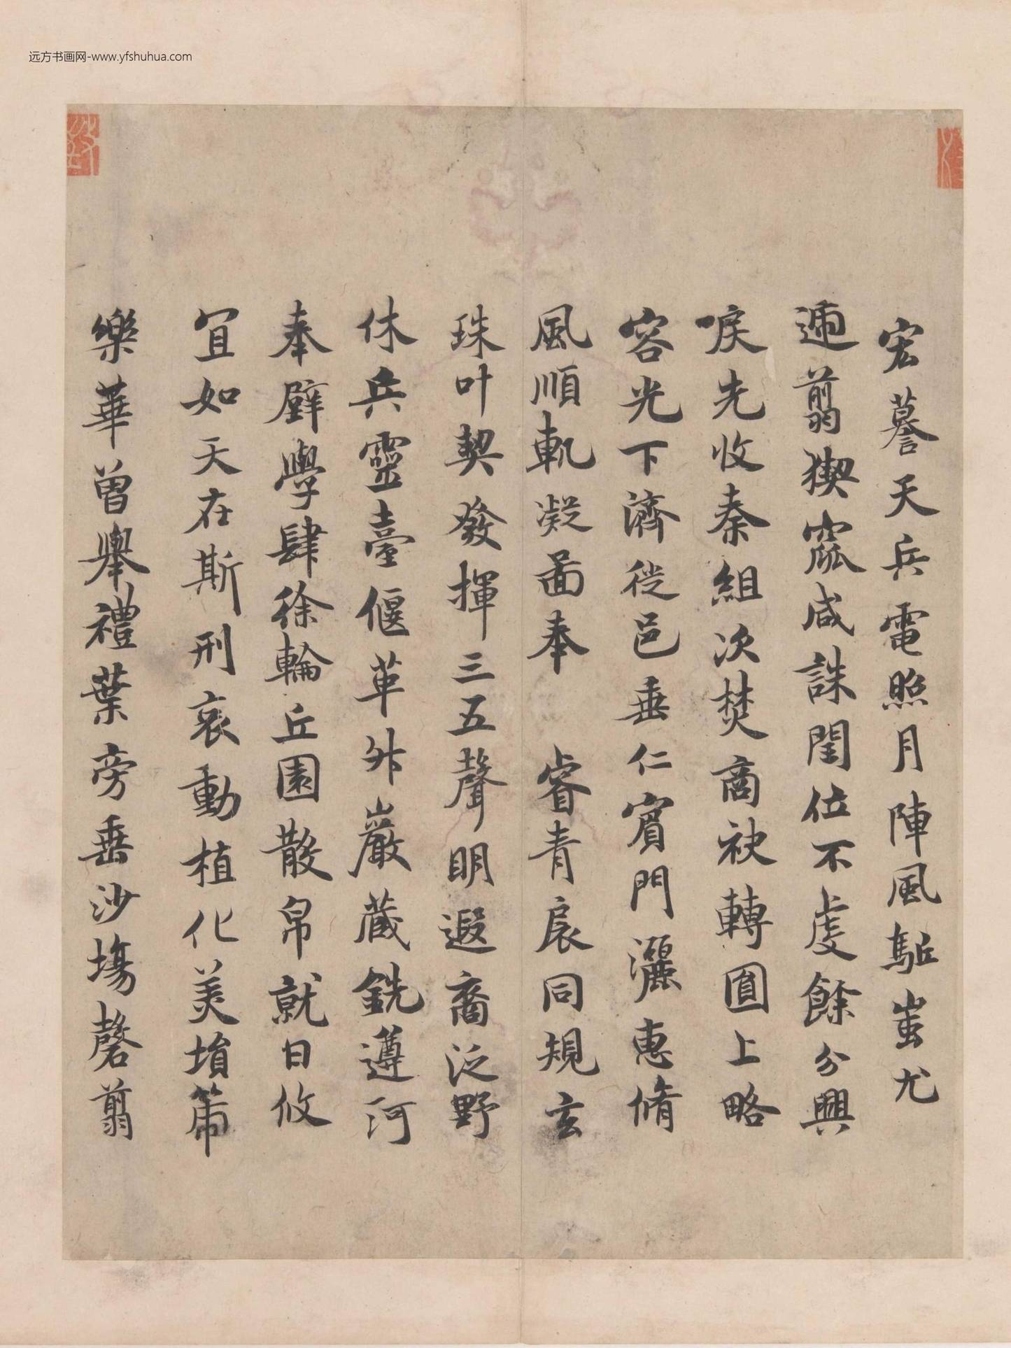 远方书画网-www.yfshuhua.com
宏謩天兵電照月陣風駈蚩尤
迊翦猰窳咸誅閏位不虔餘分興
唳先收秦組次焚商袂轉圓上略
容光下濟從邑垂仁賓門灑惠脩
風順軌凝圖奉 睿青扆同規玄
珠叶契發揮三五聲明遐裔泛野
休兵靈臺偃革舛巖蔵銑遵河
奉璧學肆徐輪丘園散帛就日攸
宜如天在斯刑哀動植化美塤箒
樂華曾舉禮葉旁垂沙塲磬翦